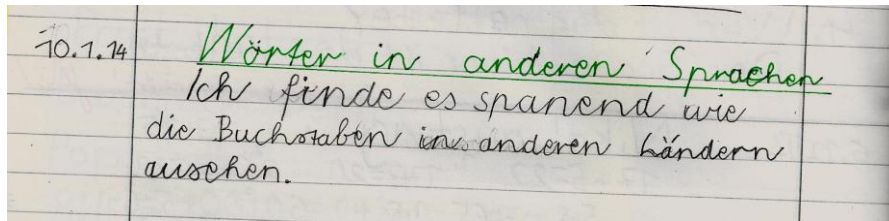 10.1.14 Wörter in anderen Sprachen
Ich finde es spanend wie
die Buchstaben in anderen Ländern
ausehen.